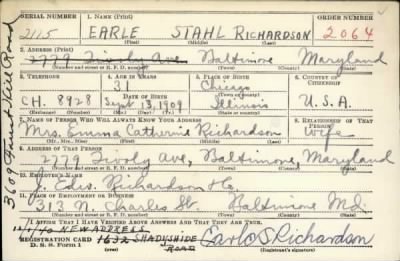 SERIAL NUMBER 1. NAME (Print) ORDER NUMBER
2115 EARLE STAHL RICHARDSON 2064
(First) (Middle) (Last)
2. ADDRESS (Print)
2779 Tivoly Ave Baltimore Maryland
(Number and street or R. F. D. number) (Town) (County) (State)
3. TELEPHONE 4. AGE IN YEARS 5. PLACE OF BIRTH 6. COUNTRY OF CITIZENSHIP
31 Chicago
DATE OF BIRTH
CH. 8928 Sept 13, 1909 Illinois U.S.A.
(Exchange) (Number) (Mo.) (Day) (Yr.) (State or country)
7. NAME OF PERSON WHO WILL ALWAYS KNOW YOUR ADDRESS 8. RELATIONSHIP OF THAT PERSON
Mrs. Emma Catherine Richardson wife
(Mr., Mrs., Miss) (First) (Middle) (Last)
9. ADDRESS OF THAT PERSON
2779 Tivoly Ave, Baltimore, Maryland
(Number and street or R. F. D. number) (Town) (County) (State)
10. EMPLOYER'S NAME
J. Edw. Richardson & Co.
11. PLACE OF EMPLOYMENT OR BUSINESS
313 N. Charles St. Baltimore Md.
(Number and street or R. F. D. number) (Town) (County) (State)
I AFFIRM THAT I HAVE VERIFIED ABOVE ANSWERS AND THAT THEY ARE TRUE.
NEW ADDRESS
REGISTRATION CARD 1632 SHADYSIDE ROAD Earle S Richardson
D. S. S. Form 1 (Registrant's signature)